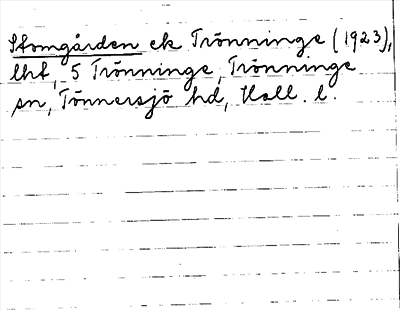 Stomgården ek Trönninge (1923),
lht, 5 Trönninge, Trönninge
sn, Tönnersjö hd, Hall. l.